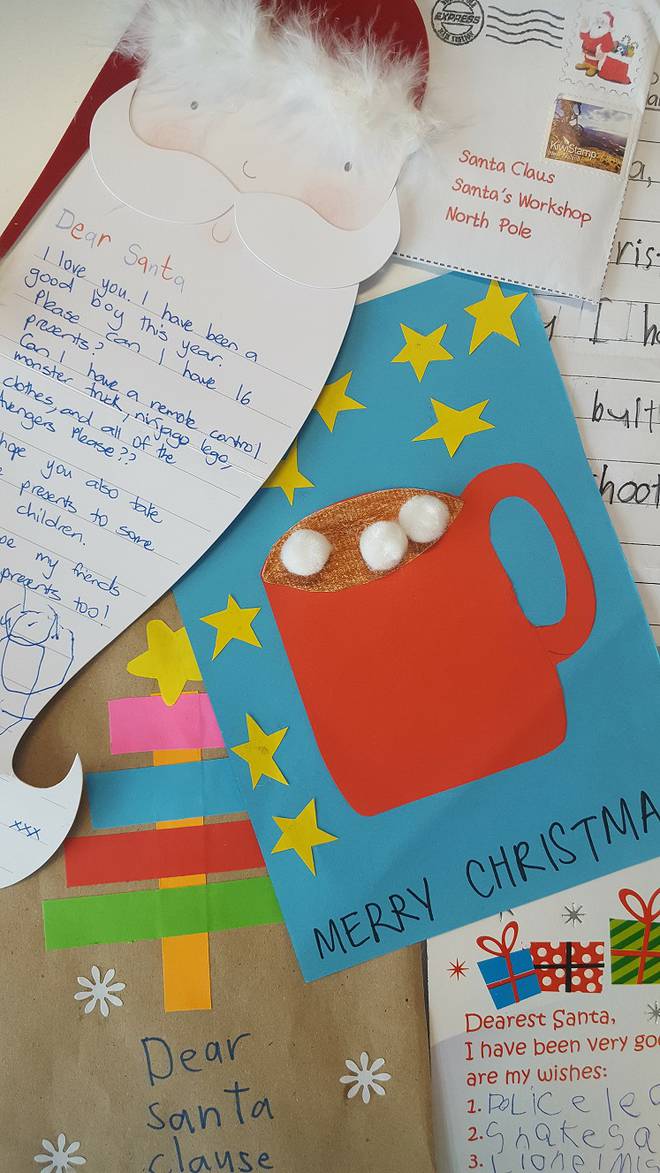 Dear Santa
I love you. I have been a
good boy this year.
Please can I have 16
presents?
Can I have a remote control
monster truck, ninjago lego,
clothes, and all of the
Please??
hope you also take
presents to some
children.
my friends
presents too!
xxx
EXPRESS
KiwiStamp
Santa Claus
Santa's Workshop
North Pole
I
built
MERRY CHRISTMA
Dear
santa
clause
Dearest Santa,
I have been very
are my wishes:
1. POLICE
2.
3.